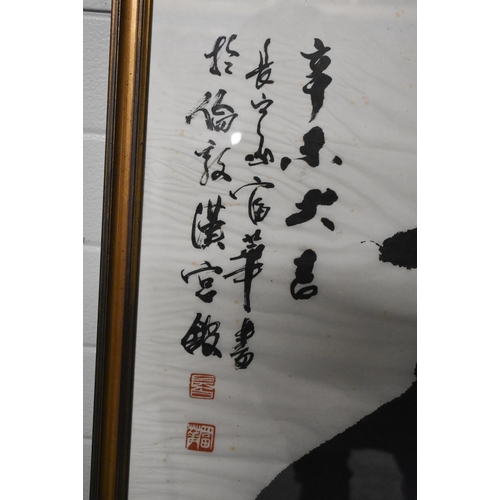 辛未大吉
長宁山富華書
於倫敦漢宮飯